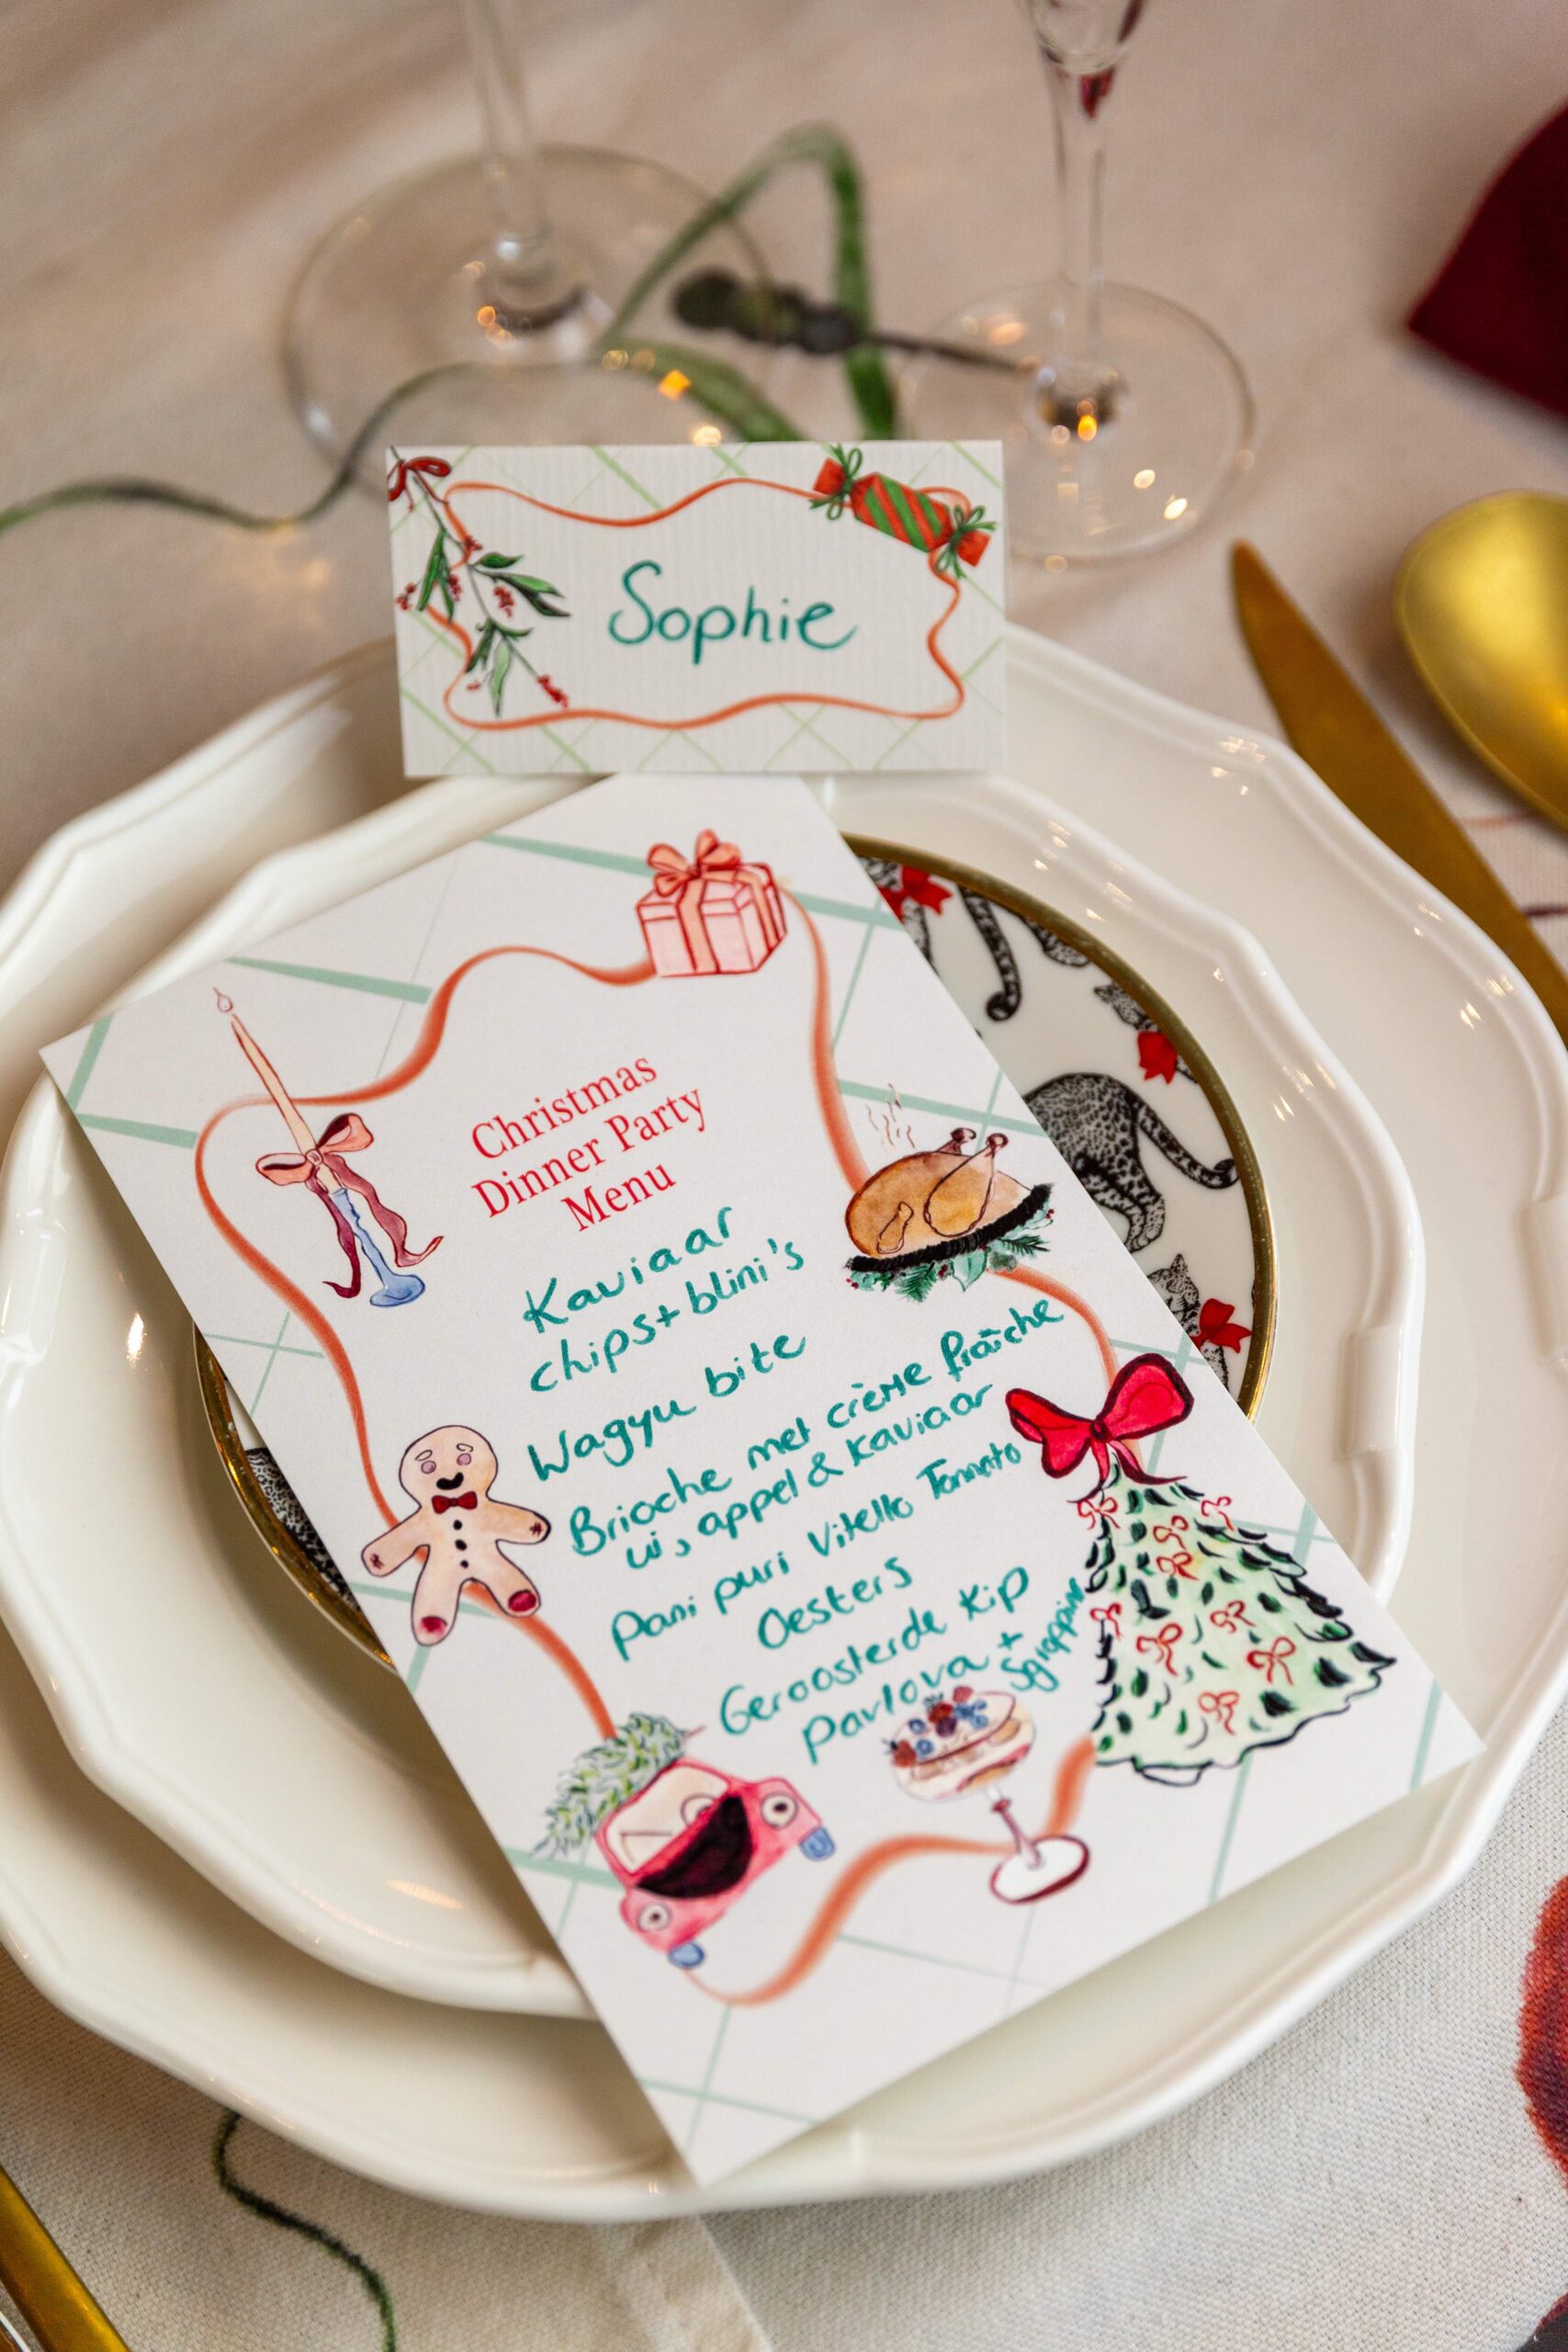 Sophie
Christmas
Dinner Party
Menu
Kaviaar
chips+ blini's
Wagyu bite
Brioche met crème fraîche
ui, appel & kaviaar
Pani puri Vitello Tonnato
Oesters
Geroosterde kip
Pavlova +
Sgroppino